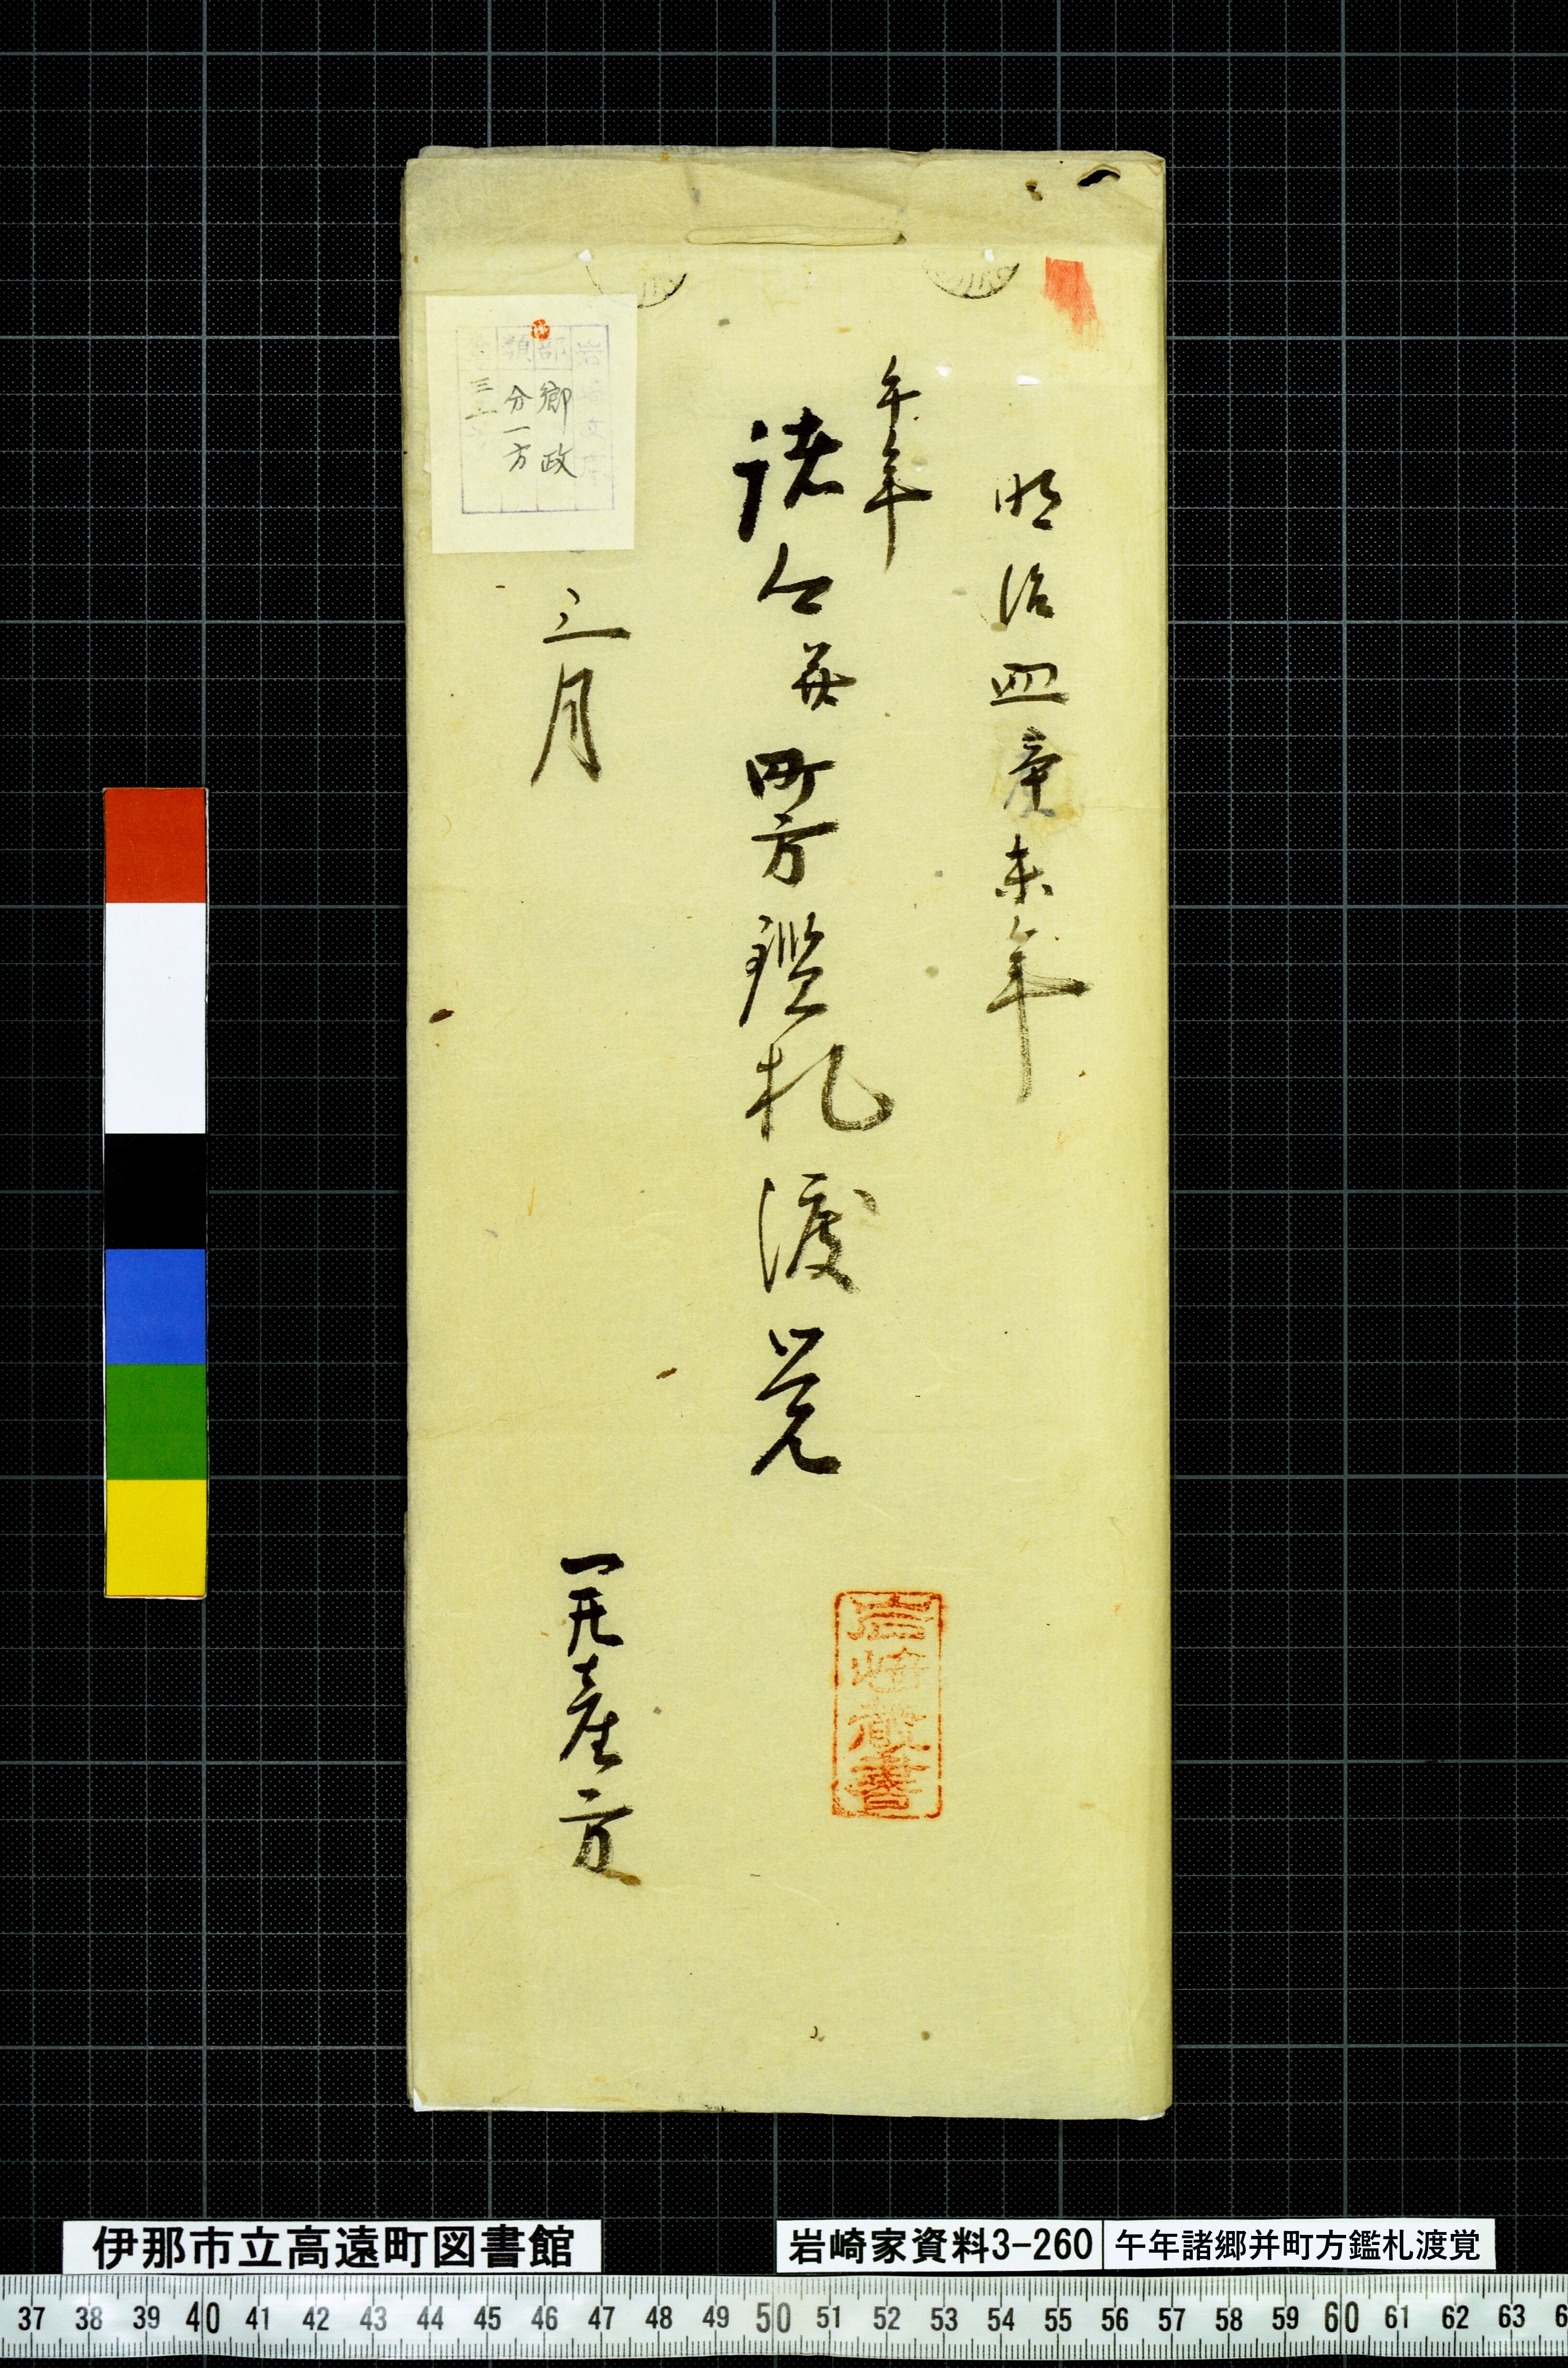 明治四辛未年
午年
諸郷并町方鑑札渡覚
三月
産方
岩崎蔵書
岩崎文庫
部 郷政
類 分一方
伊那市立高遠町図書館
岩崎家資料3-260
午年諸郷并町方鑑札渡覚
37 38 39 40 41 42 43 44 45 46 47 48 49 50 51 52 53 54 55 56 57 58 59 60 61 62 63 6